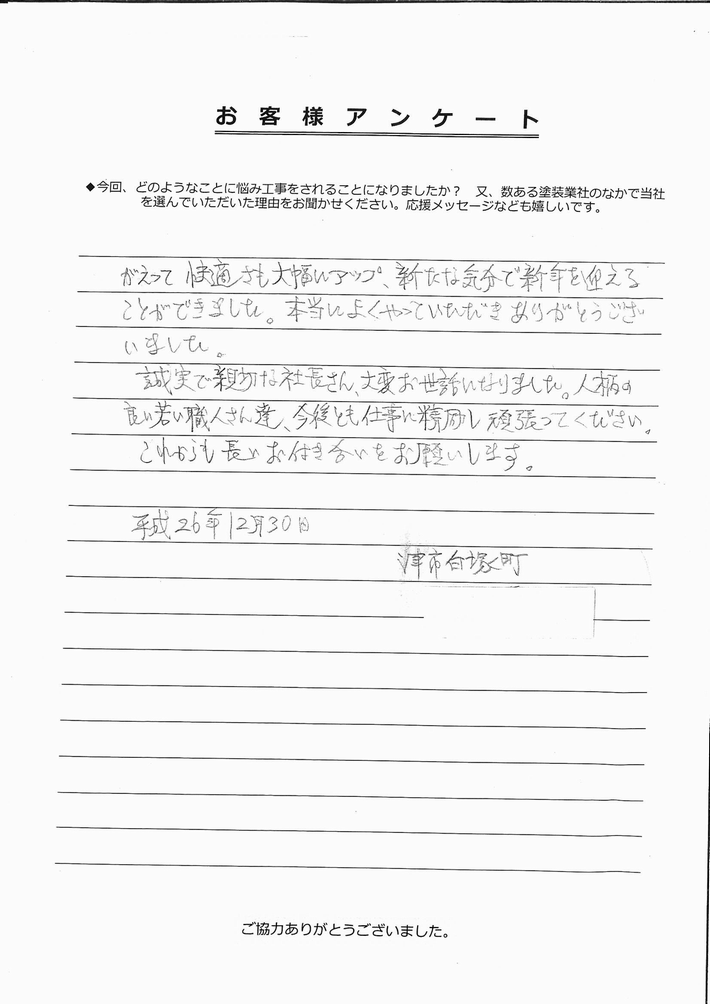 お客様アンケート
◆今回、どのようなことに悩み工事をされることになりましたか？　又、数ある塗装業社のなかで当社
を選んでいただいた理由をお聞かせください。応援メッセージなども嬉しいです。
がえって快適さも大幅にアップ、新たな気分で新年を迎える
ことができました。本当によくやっていただきありがとうござ
いました。
誠実で親切な社長さん、大変お世話になりました。人柄の
良い若い職人さん達、今後とも仕事に精励し頑張ってください。
これからも長いお付き合いをお願いします。
平成26年12月30日
津市白塚町
ご協力ありがとうございました。